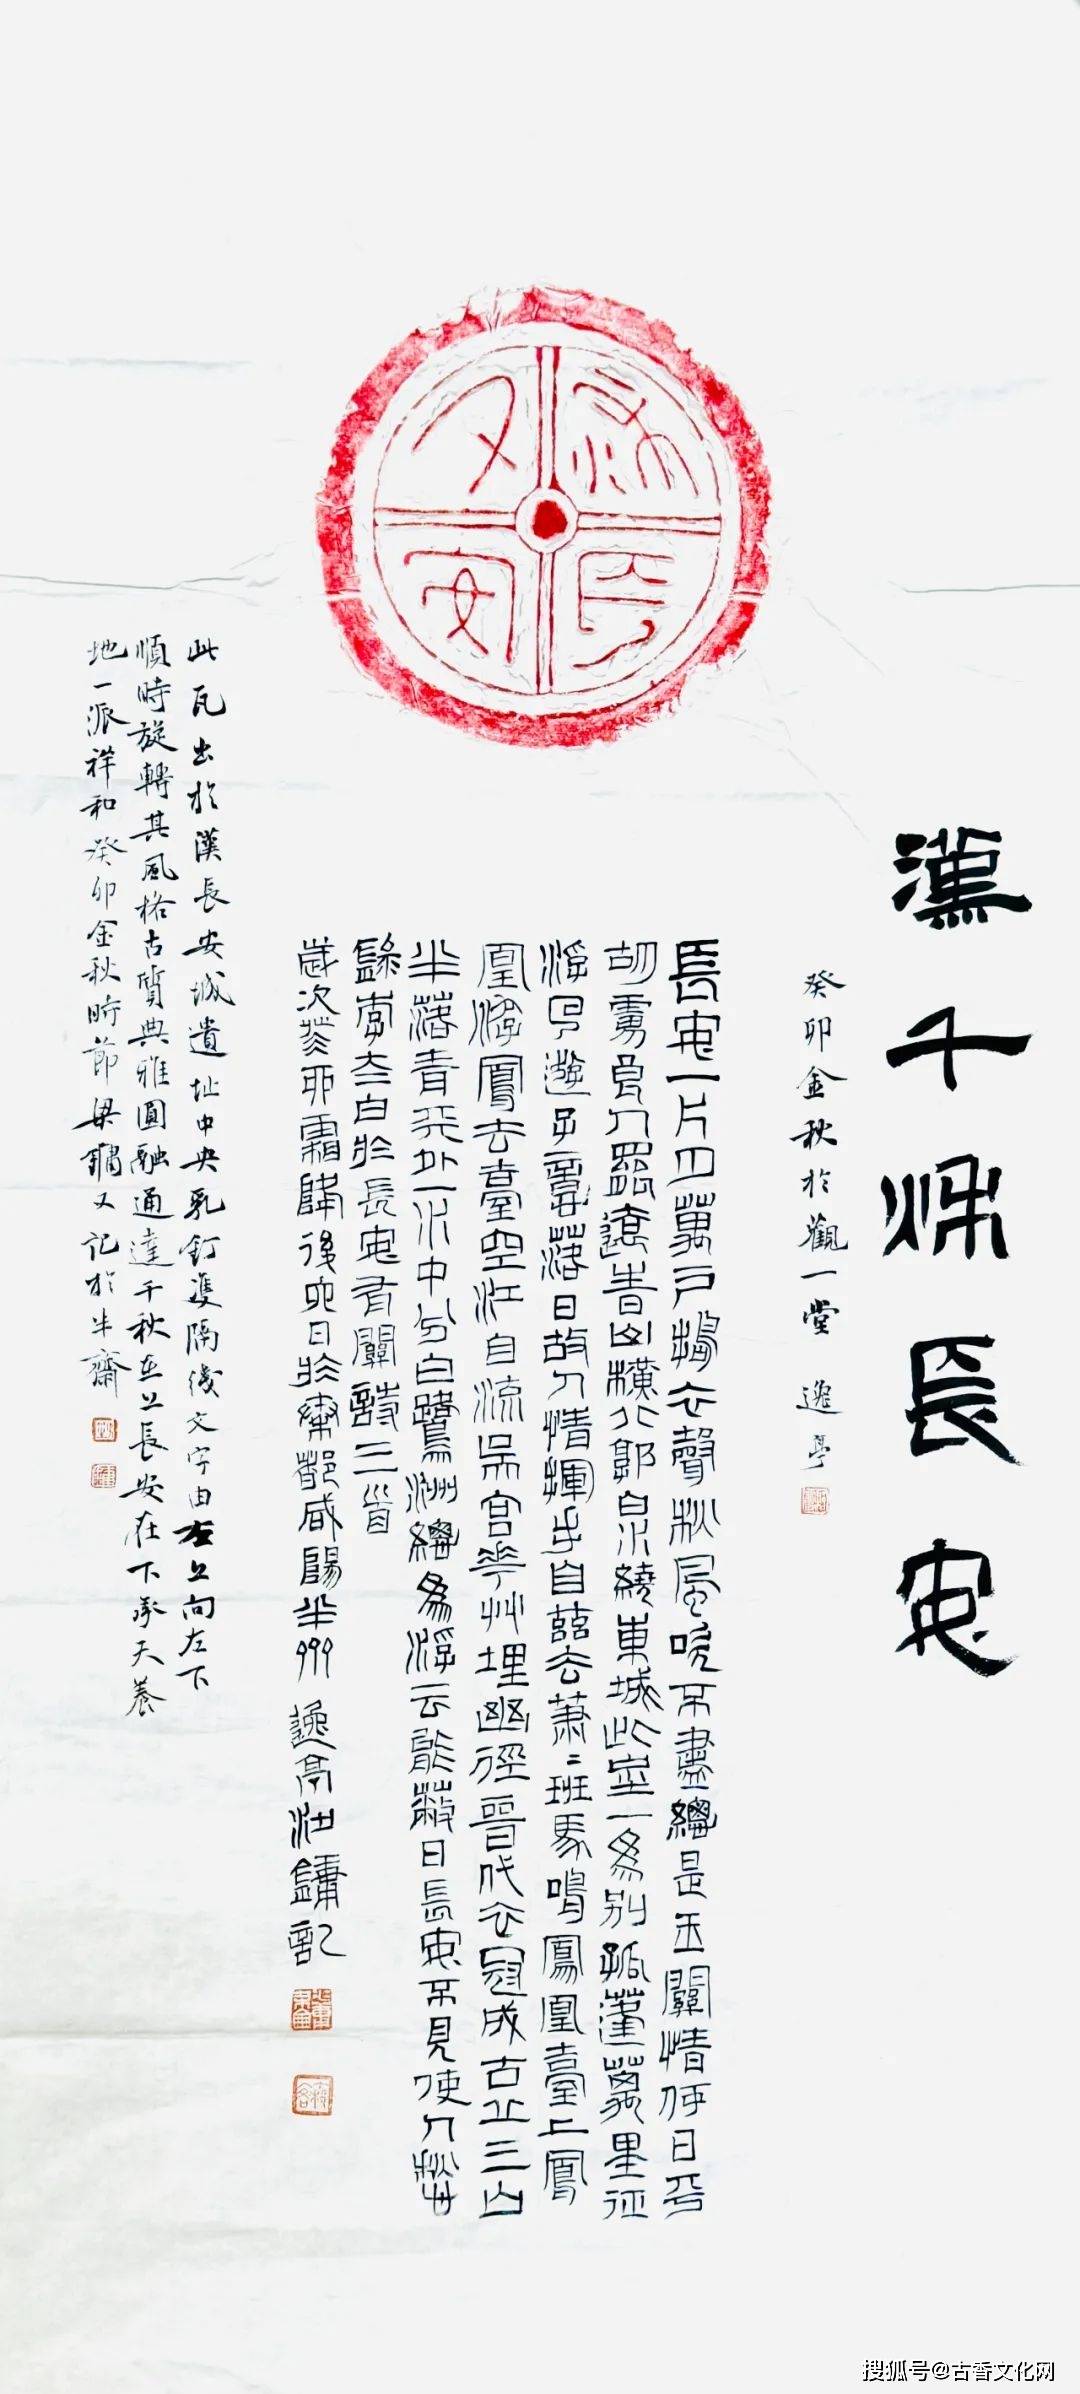 漢千秋長安
癸卯金秋於觀一堂 逸亭
千秋長安
長安一片月萬戶搗衣聲秋風吹不盡總是玉關情何日平
胡虜良人罷遠青山橫北郭白水繞東城此地一為別孤蓬萬里征
浮雲遊子意落日故人情揮手自茲去蕭〻班馬鳴鳳凰臺上鳳
凰遊鳳去臺空江自流吳宮花草埋幽徑晉代衣冠成古丘三山
半落青天外一水中分白鷺洲總為浮云能蔽日長安不見使人愁
錄李太白於長安有關詩三首
歲次癸卯霜降後 日於秦都咸陽半 逸亭 鏽記
此瓦出於漢長安城遺址中央乳釘雙隔綫文字由右上向左下
順時旋轉其風格古質典雅圓融通達千秋在上長安在下承天養
地一派祥和癸卯金秋時節梁鏽又記於半齋
搜狐号@古香文化网